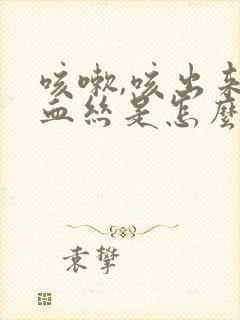 咳嗽,咳出来
血丝是怎麽
袁攀